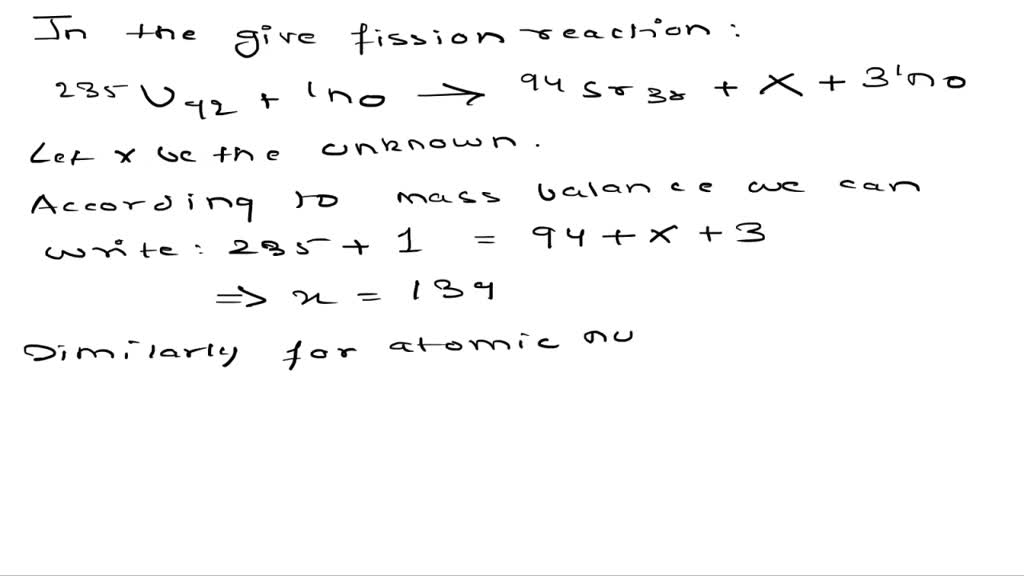 In the give fission reaction :
²³⁵U₉₂ + ¹n₀ → ⁹⁴Sr₃₈ + X + 3¹n₀
Let x be the unknown.
According to mass balance we can
write : 235 + 1 = 94 + x + 3
⇒ x = 139
Similarly for atomic nu